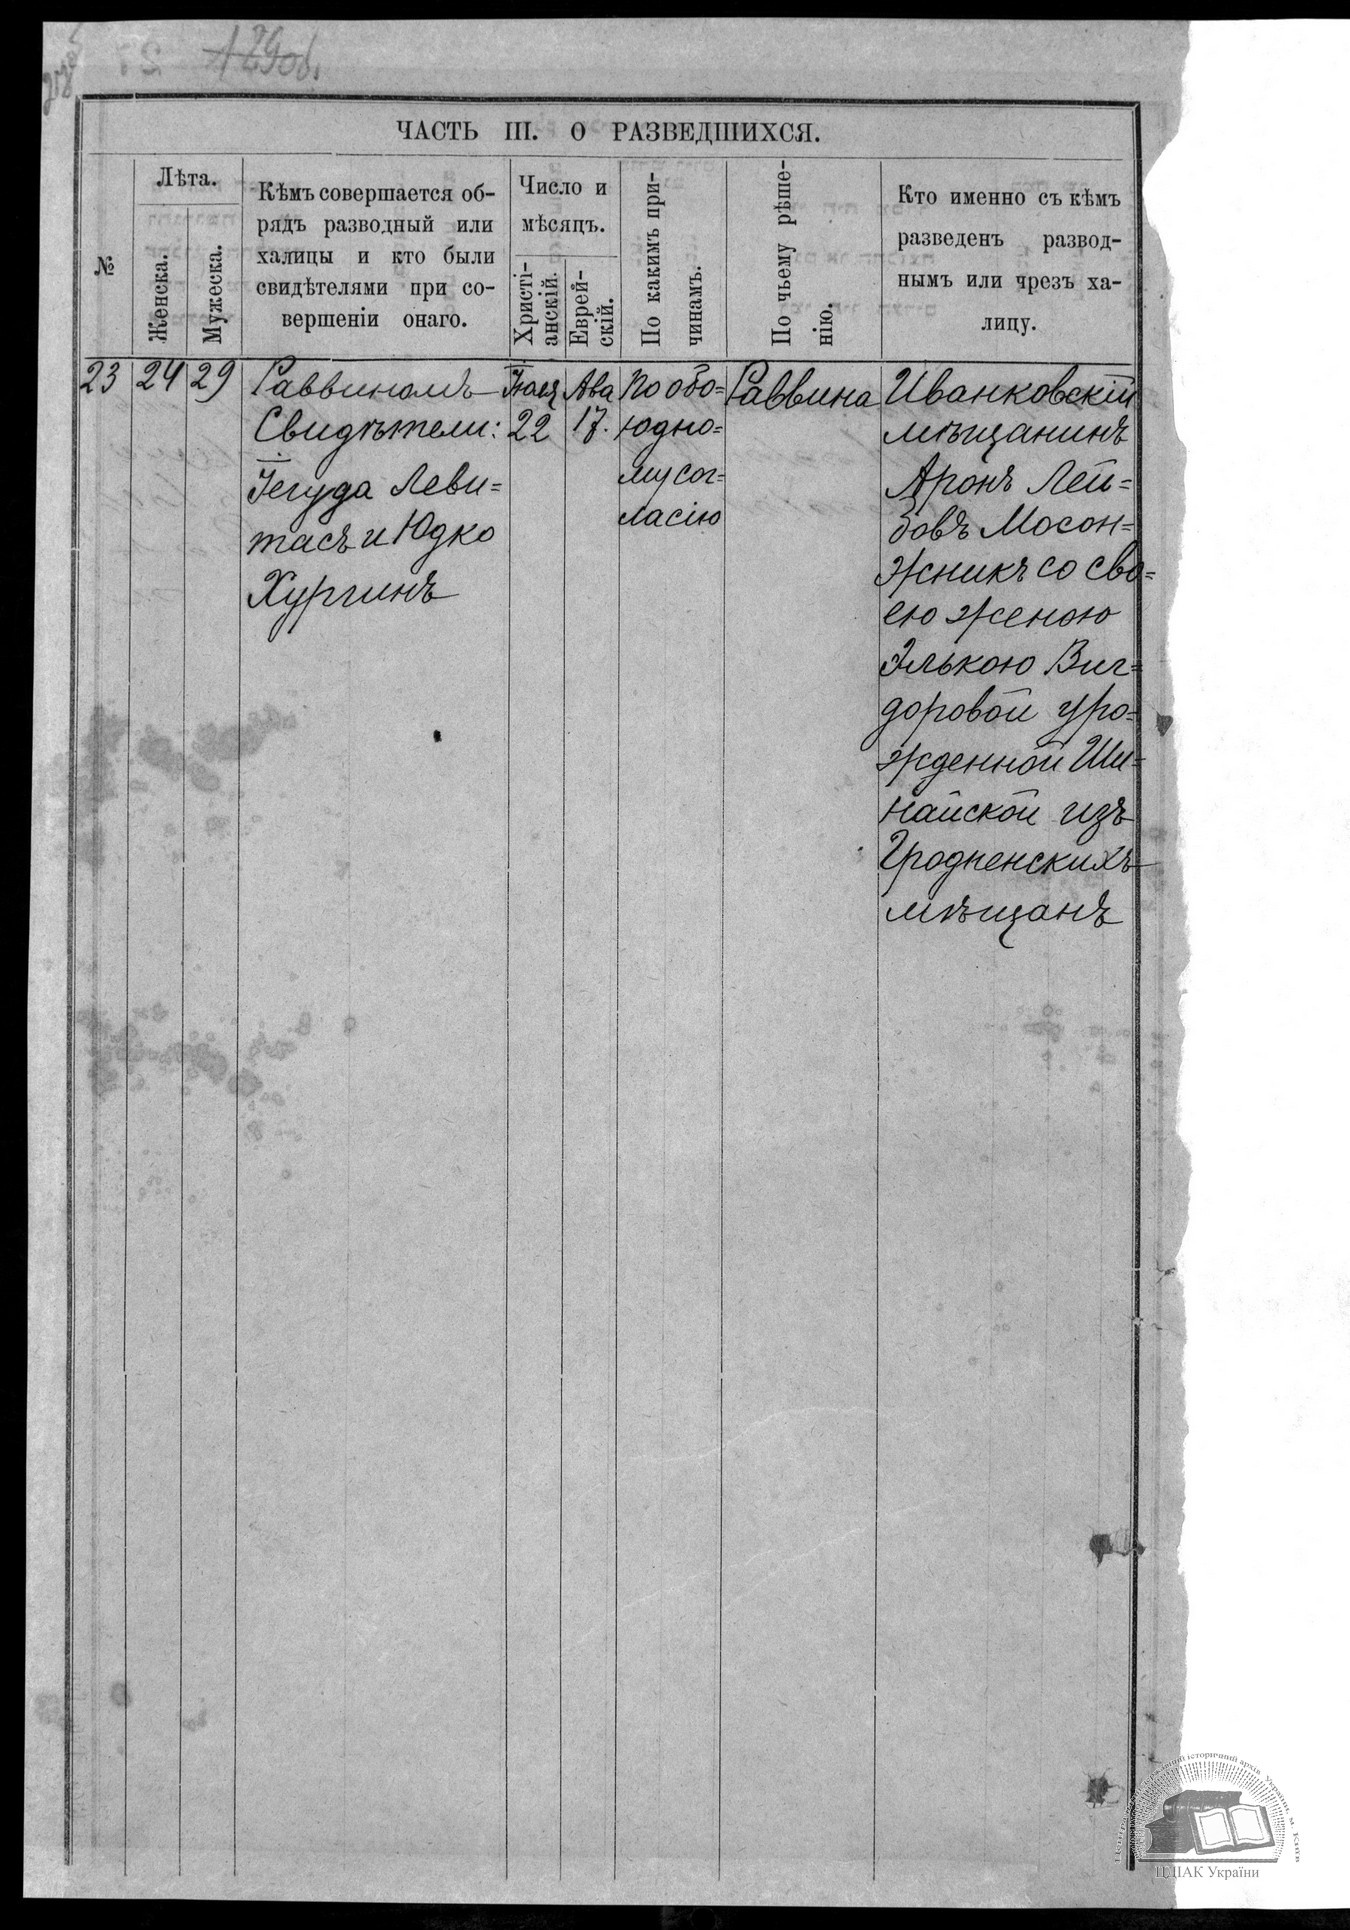 129об.
ЧАСТЬ III. О РАЗВЕДШИХСЯ.
№
Лѣта.
Женска.
Мужеска.
Кѣмъ совершается об-
рядъ разводный или
халицы и кто были
свидѣтелями при со-
вершеніи онаго.
Число и
мѣсяцъ.
Христі-
анскій.
Еврей-
скій.
По какимъ при-
чинамъ.
По чьему рѣше-
нію.
Кто именно съ кѣмъ
разведенъ развод-
нымъ или чрезъ ха-
лицу.
23
24
29
Раввиномъ
Свидѣтели:
Іегуда Леви=
тасъ и Юдко
Хургинъ
Іюля
22
Ава
17.
По обо=
юдно=
му сог=
ласію
Раввина
Иванковскій
мѣщанинъ
Аронъ Лей=
бовъ Мосон=
жникъ со сво=
ею женою
Элькою Виг=
доровой уро=
жденной Ши=
найской изъ
Гродненскихъ
мѣщанъ
ЦДІАК України